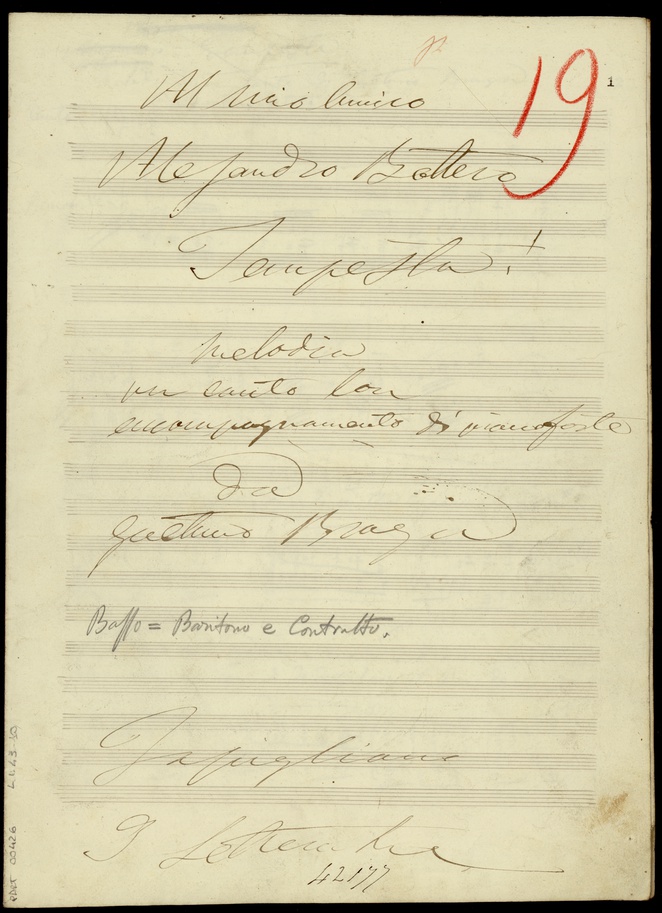 1
19
Al mio Amico
Alessandro Bottero
Tempesta!
Melodia
un canto con
accompagnamento di pianoforte
da
Gaetano Braga
Basso = Baritono e Contralto.
9 Settembre
42177
PART 00426